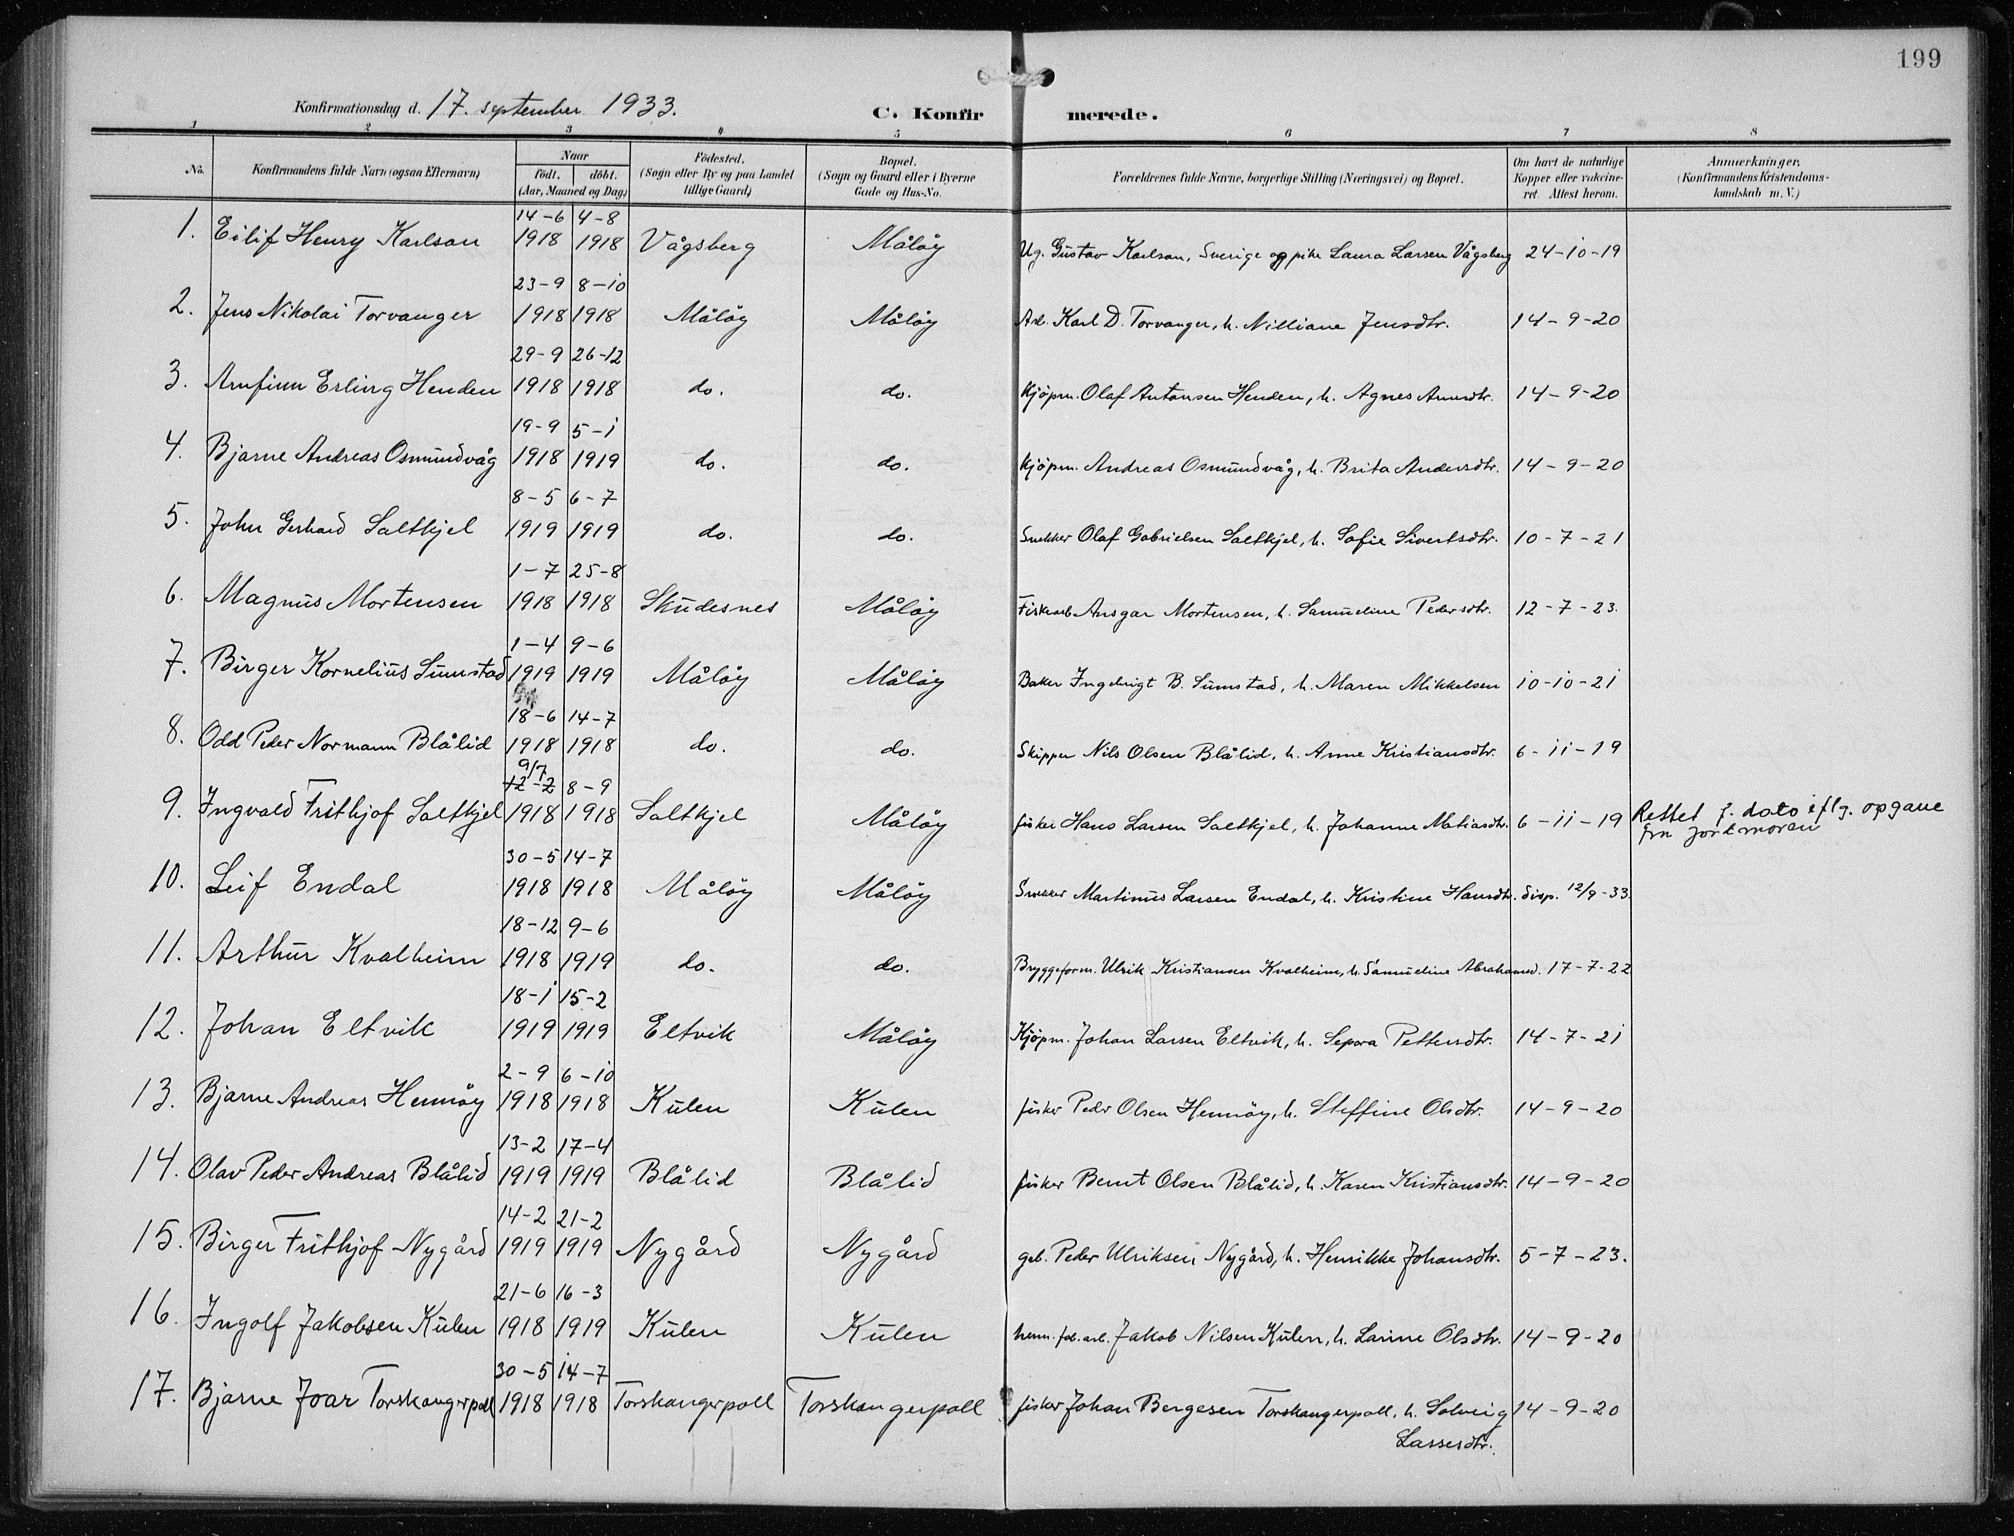 199
Konfirmationsdag d. 17. september 1933. C. Konfirmerede.
1 2 3 4 5 6 7 8
No. Konfirmandens fulde Navn (ogsaa Efternavn) Naar födt. döbt. (Aar, Maaned og Dag) Födested. (Sogn eller By og paa Landet tillige Gaard) Bopæl. (Sogn og Gaard eller i Byerne Gade og Hus-No. Forældrenes fulde Navne, borgerlige Stilling (Næringsvei) og Bopæl. Om havt de naturlige Kopper eller vaccineret. Attest herom. Anmærkninger. (Konfirmandens Kristendomskundskab m. V.)
1. Eilif Henry Karlson 14-6 1918 4-8 1918 Vågsberg Måløy Ug. Gustav Karlson, Sverige og pike Laura Larsen Vågsberg 24-10-19
2. Jens Nikolai Torvanger 23-9 1918 8-10 1918 Måløy Måløy Arb. Karl D. Torvanger, h. Nilliane Jensdtr. 14-9-20
3. Arnfinn Erling Henden 29-9 1918 26-12 1918 do. do. Kjøpm. Olaf Antonsen Henden, h. Agnes Amundtr. 14-9-20
4. Bjarne Andreas Osmundvåg 19-9 1918 5-1 1919 do. do. Kjøpm. Andreas Osmundvåg, h. Brita Andersdtr. 14-9-20
5. John Gerhard Saltkjel 8-5 1919 6-7 1919 do. do. Snekker Olaf Gabrielsen Saltkjel, h. Sofie Sivertsdtr. 10-7-21
6. Magnus Mortensen 1-7 1918 25-8 1918 Skudesnes Måløy Fiskarb Ansgar Mortensen, h. Samueline Pedersdtr. 12-7-23.
7. Birger Kornelius Sumstad 1-4 1919 9-6 1919 Måløy Måløy Baker Ingebrigt B. Sumstad, h. Maren Mikkelsen 10-10-21
8. Odd Peder Normann Blålid 18-6 1918 14-7 1918 do. do. Skipper Nils Olsen Blålid, h. Anne Kristiansdtr. 6-11-19
9. Ingvald Frithjof Saltkjel 9/7 12-2 1918 8-9 1918 Saltkjel Måløy fisker Hans Larsen Saltkjel, h. Johanne Matiasdtr. 6-11-19 Rettet f. dato iflg. opgave
fra jordmoren
10. Leif Endal 30-5 1918 14-7 1918 Måløy Måløy Snekker Martinus Larsen Endal, h. Kristine Hansdtr. disp. 12/9-33.
11. Arthur Kvalheim 18-12 1918 9-6 1919 do. do. Bryggeform. Ulrik Kristiansen Kvalheim, h. Samueline Abrahamsd. 17-7-22
12. Johan Eltvik 18-1 1919 15-2 1919 Eltvik Måløy Kjøpm. Johan Larsen Eltvik, h. Sepora Pettersdtr. 14-7-21
13. Bjarne Andreas Hennøy 2-9 1918 6-10 1918 Kulen Kulen fisker Peder Olsen Hennøy, h. Steffine Olsdtr. 14-9-20
14. Olav Peder Andreas Blålid 13-2 1919 17-4 1919 Blålid Blålid fisker Bernt Olsen Blålid, h. Karen Kristiansdtr. 14-9-20
15. Birger Frithjof Nygård 14-2 1919 21-2 1919 Nygård Nygård gdb. Peder Ulriksen Nygård, h. Henrikke Johansdtr. 5-7-23.
16. Ingolf Jakobsen Kulen 21-6 1918 16-3 1919 Kulen Kulen herm. fab. arb. Jakob Nilsen Kulen, h. Larine Olsdtr. 14-9-20
17. Bjarne Joar Torskangerpoll 30-5 1918 14-7 1918 Torskangerpoll Torskangerpoll fisker Johan Børgesen Torskangerpoll, h. Solveig 14-9-20
Lassesdtr.